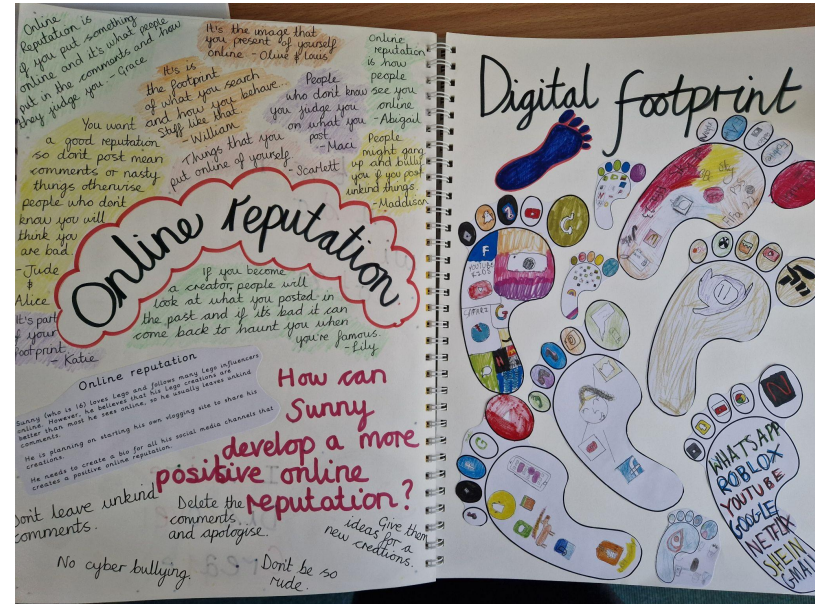 Online
Reputation is
if you put something
online and it's what people
put in the comments and how
they judge you - Grace
It's the image that
you present of yourself
online - Olive & Louis
Online
reputation
is how
people
see you
online
- Abigail
It's
the footprint
of what you search
and how you behave..
Stuff like that
- William
People
who don't know
you judge you
on what you
post.
- Maci
You want
a good reputation
so don't post mean
comments or nasty
things otherwise
people who don't
know you will
think you
are bad.
- Jude
&
Alice
Things that you
put online of yourself
- Scarlett
People
might gang
up and bully
you if you post
unkind things.
- Maddison
Online reputation
If you become
a creator, people will
look at what you posted in
the past and if it's bad it can
come back to haunt you when
you're famous.
- Lily
It's part
of your
footprint
- Katie
Online reputation
Sunny (who is 16) loves Lego and follows many Lego influencers
online. However, he believes that his Lego creations are
better than most he sees online, so he usually leaves unkind
comments.
He is planning on starting his own vlogging site to share his
creations.
He needs to create a bio for all his social media channels that
creates a positive online reputation.
How can
Sunny
develop a more
positive online
reputation?
Don't leave unkind
comments.
Delete the
comments...
and apologise.
Give them
ideas for a
new creations.
No cyber bullying.
Don't be so
rude.
Digital footprint
F
YOUTUBE
KIDS
G
N
WHATSAPP
ROBLOX
YOUTUBE
GOOGLE
NETFLIX
SHEIN
G-MAIL